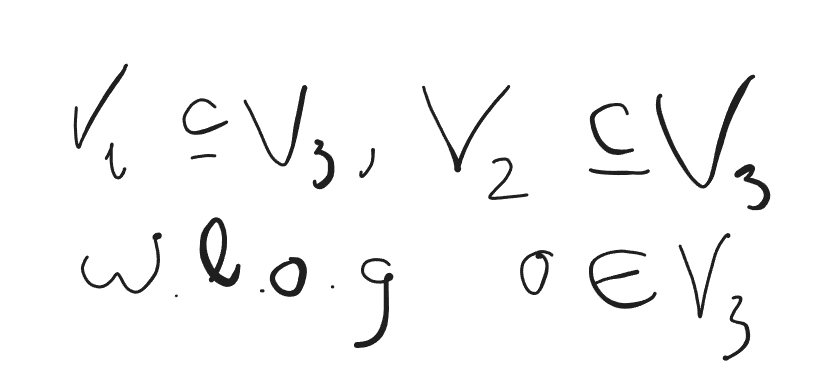 V₁ ⊆ V₃, V₂ ⊆ V₃
w.l.o.g 0 ∈ V₃